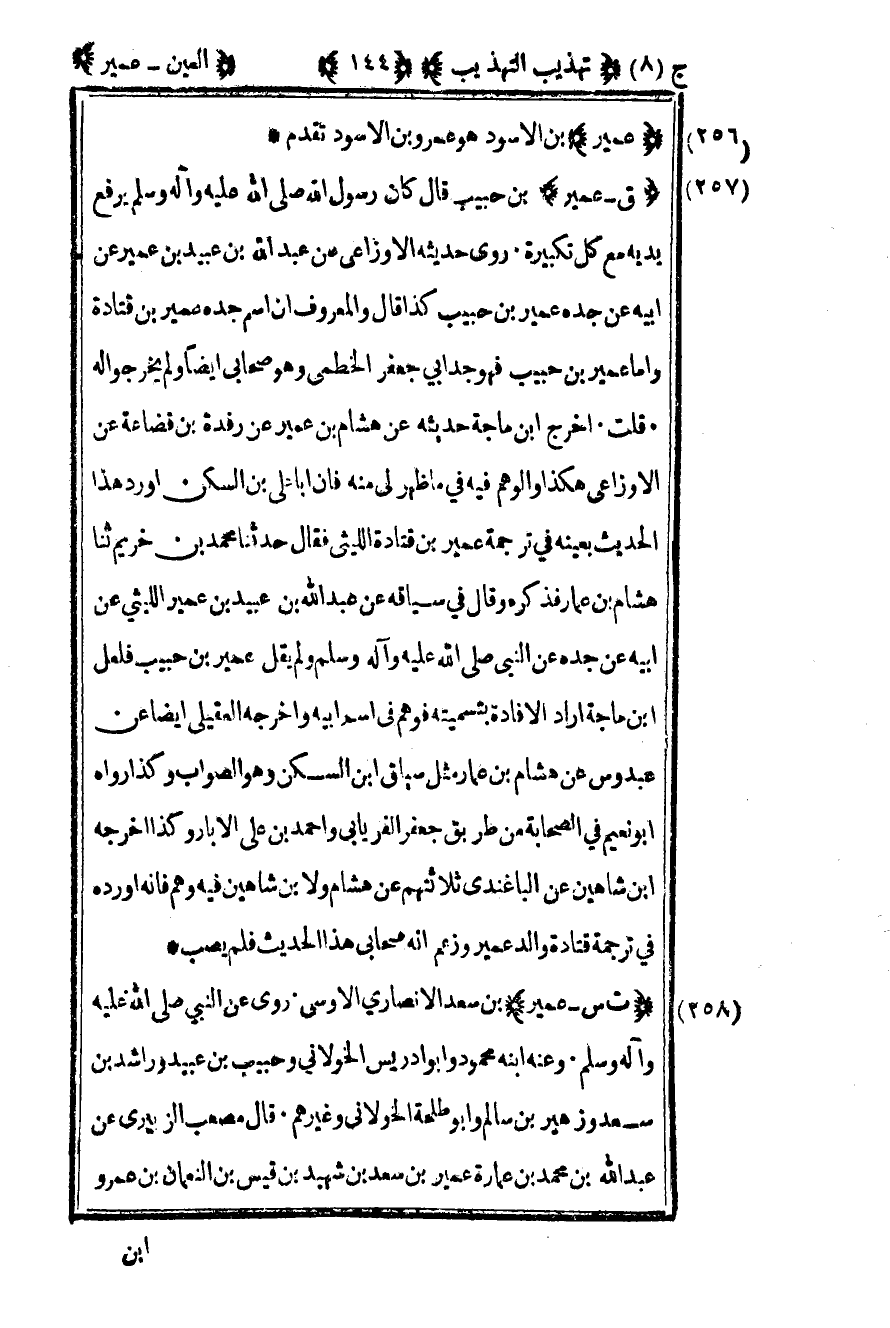 ج (٨) ﴿ تهذيب التهذيب ﴾ ﴿ ١٤٤ ﴾ ﴿ العين - عمير ﴾
(٢٥٦) ﴿ عمير ﴾ بن الاسود هو عمرو بن الاسود تقدم *
(٢٥٧) ﴿ ق - عمير ﴾ بن حبيب قال كان رسول الله صلى الله عليه وآله وسلم يرفع
يديه مع كل تكبيرة · روى حديثه الاوزاعى عن عبد الله بن عبيد بن عمير عن
ابيه عن جده عمير بن حبيب كذا قال والمعروف ان اسم جده عمير بن قتادة
واما عمير بن حبيب فهو جد ابي جعفر الخطمى وهو صحابى ايضاً ولم يخرجوا له
· قلت · اخرج ابن ماجة حديثه عن هشام بن عمير عن رفدة بن قضاعة عن
الاوزاعى هكذا والوهم فيه في ما ظهر لى منه فان ابا على بن السكن اورد هذا
الحديث بعينه في ترجمة عمير بن قتادة الليثى فقال حدثنا محمد بن خريم ثنا
هشام بن عمار فذكره وقال في سياقه عن عبد الله بن عبيد بن عمير الليثي عن
ابيه عن جده عن النبى صلى الله عليه وآله وسلم ولم يقل عمير بن حبيب فلعل
ابن ماجة اراد الافادة بتسميته فوهم فى اسم ابيه واخرجه العقيلى ايضا عن
عبدوس عن هشام بن عمار مثل سياق ابن السكن وهو الصواب وكذا رواه
ابو نعيم في الصحابة من طريق جعفر الفريابى واحمد بن على الابار وكذا اخرجه
ابن شاهين عن الباغندى ثلاثتهم عن هشام ولا بن شاهين فيه وهم فانه اورده
في ترجمة قتادة والد عمير وزعم انه صحابى هذا الحديث فلم يصب *
(٢٥٨) ﴿ ت س - عمير ﴾ بن سعد الانصاري الاوسى · روى عن النبي صلى الله عليه
وآله وسلم · وعنه ابنه محمود وابو ادريس الخولاني وحبيب بن عبيد وراشد بن
سعد وزهير بن سالم وابو طلحة الخولانى وغيرهم · قال مصعب الزبيرى عن
عبد الله بن محمد بن عمارة عمير بن سعد بن شهيد بن قيس بن النعمان بن عمرو
ابن